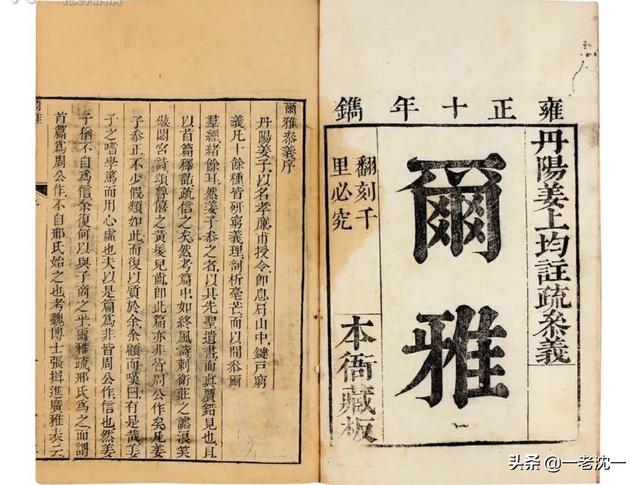 雍正十年鐫
丹陽姜上均註疏叅義
爾雅
本衙藏板
翻刻千
里必究
爾雅叅義序
丹陽姜子以名孝廉甫授令即息石山中鍵戸窮
義凡十餘種皆研窮義理剖析毫芒而以間叅爾
羣經緒餘耳然姜子叅之者以其先聖遺書而真贋錯見也且
以首篇釋詁疏信之矣然考篇中如終風詩刺衛莊之謔浪笑
傲閟宮詩頌魯僖之黃髮兒齒即此篇亦非皆周公作矣凡姜
子叅正不少假類如此而復以質於余余顧而嘆曰有是哉姜
子之嗜學篤而用心虛也夫以是篇爲非皆周公作信也然姜
子猶不自爲信余復何以與子商之乎爾雅疏邢氏爲之而謂
首篇爲周公作不自邢氏始之也考魏博士張揖進廣雅表云
頭条 @一老沈一